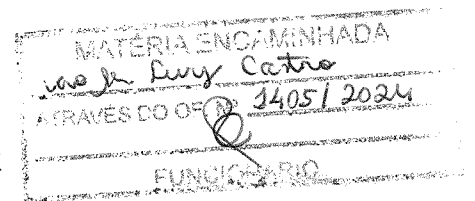 MATÉRIA ENCAMINHADA
ao Castro
ATRAVÉS DO OF Nº 1405/2024
FUNCIONÁRIO